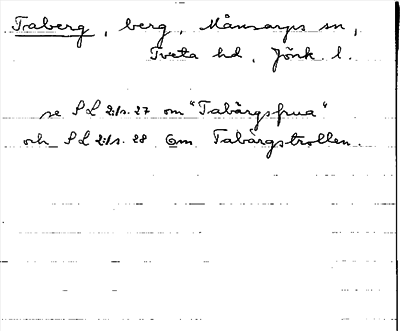 Taberg, berg, Månsarps sn,
Tveta hd, Jönk. l.
se SL 2:1 s. 27 om "Tabärgsfrua"
och SL 2:1 s. 28 om Tabärgstrollen.